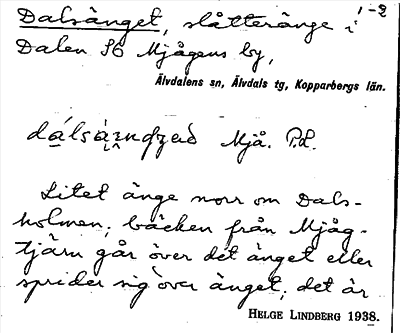 1-2
Dalsänget, slåtteränge i
Dalen SO Mjågens by,
Älvdalens sn, Älvdals tg, Kopparbergs län.
Mjå. P.L.
Litet änge norr om Dals-
holmen; bäcken från Mjåg-
tjärn går över det änget eller
sprider sig över änget; det är
HELGE LINDBERG 1938.